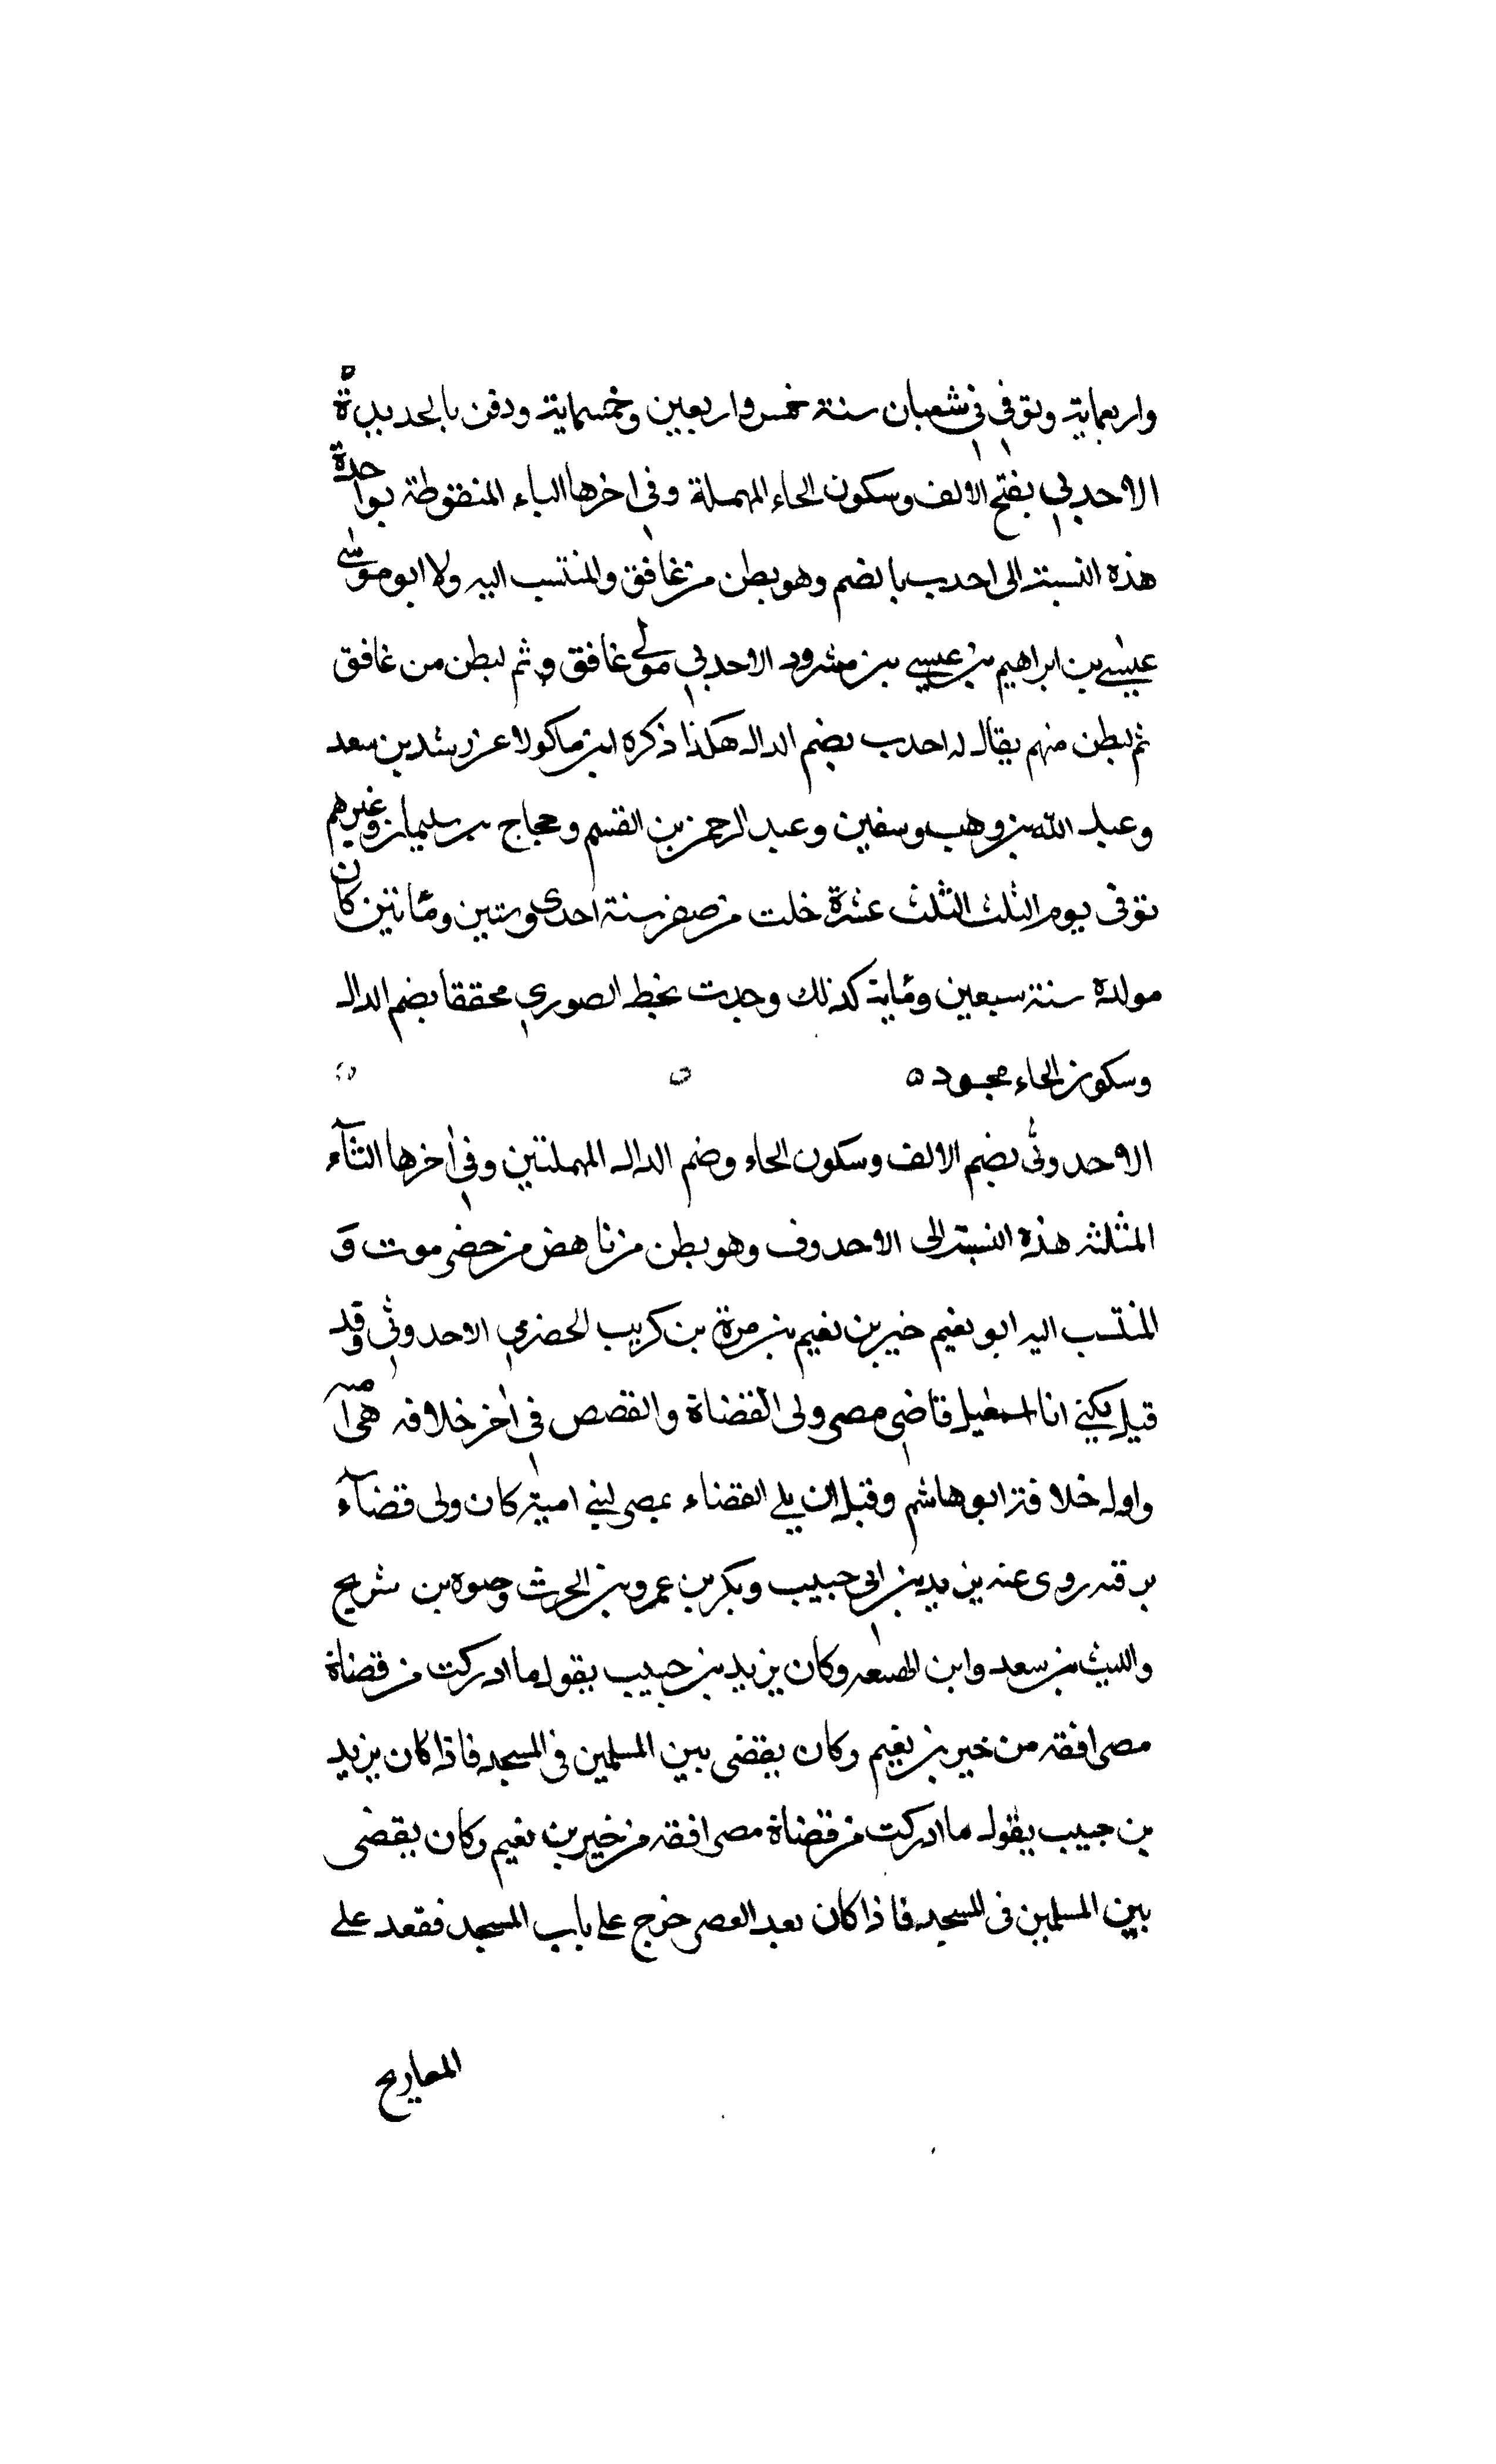 واربعماية وتوفى فى شعبان سنة خمس واربعين وخمسماية ودفن بالحديدة
الاحدبي بفتح الالف وسكون الحاء المهملة وفى اخرها الباء المنقوطة بواحدة
هذه النسبة الى احدب بالضم وهو بطن من غافق والمنتسب اليه ولا ابو موسى
عيسى بن ابراهيم بن عيسى بن مشرود الاحدبي مولى غافق و ثم لبطن من غافق
ثم لبطن منهم يقال له احدب بضم الدال هكذا ذكره ابن ماكولا عن رشد بن سعد
وعبد الله بن وهب وسفين وعبد الرحمن بن القسم وحجاج بن سليمان وغيرهم
توفى يوم الثلث الثلث عشرة خلت من صفر سنة احدى وستين ومائتين كان
مولده سنة سبعين ومائة كذلك وجدت بخط الصوري محققا بضم الدال
وسكون الحاء مجود ه
الاحدوثى بضم الالف وسكون الحاء وضم الدال المهملتين وفى اخرها الثاء
المثلثه هذه النسبة الى الاحدوث وهو بطن من ناهض من حضرموت و
المنتسب اليه ابو نعيم خير بن نعيم بن مرة بن كريب الحضرمي الاحدوثى وقد
قيل يكنى انا اسمعيل قاضى مصر ولى القضاة والقصص فى اخر خلافه
واول خلافة ابو هاشم وقبل ان يلي القضاء بمصر لبنى امية كان ولى قضاء
برقه روى عنه يزيد بن ابى حبيب وبكر بن عمرو بن الحرث وحيوه بن شريح
والليث بن سعد وابن وكان يزيد بن حبيب يقول ما ادركت من قضاة
مصر افقه من خير بن نعيم وكان يقضى بين المسلمين فى المسجد فاذا كان يزيد
بن حبيب يقول ما ادركت من قضاة مصر افقه من خير بن نعيم وكان يقضى
بين المسلمين فى المسجد فاذا كان بعد العصر خرج على باب المسجد فقعد على
المعاريج